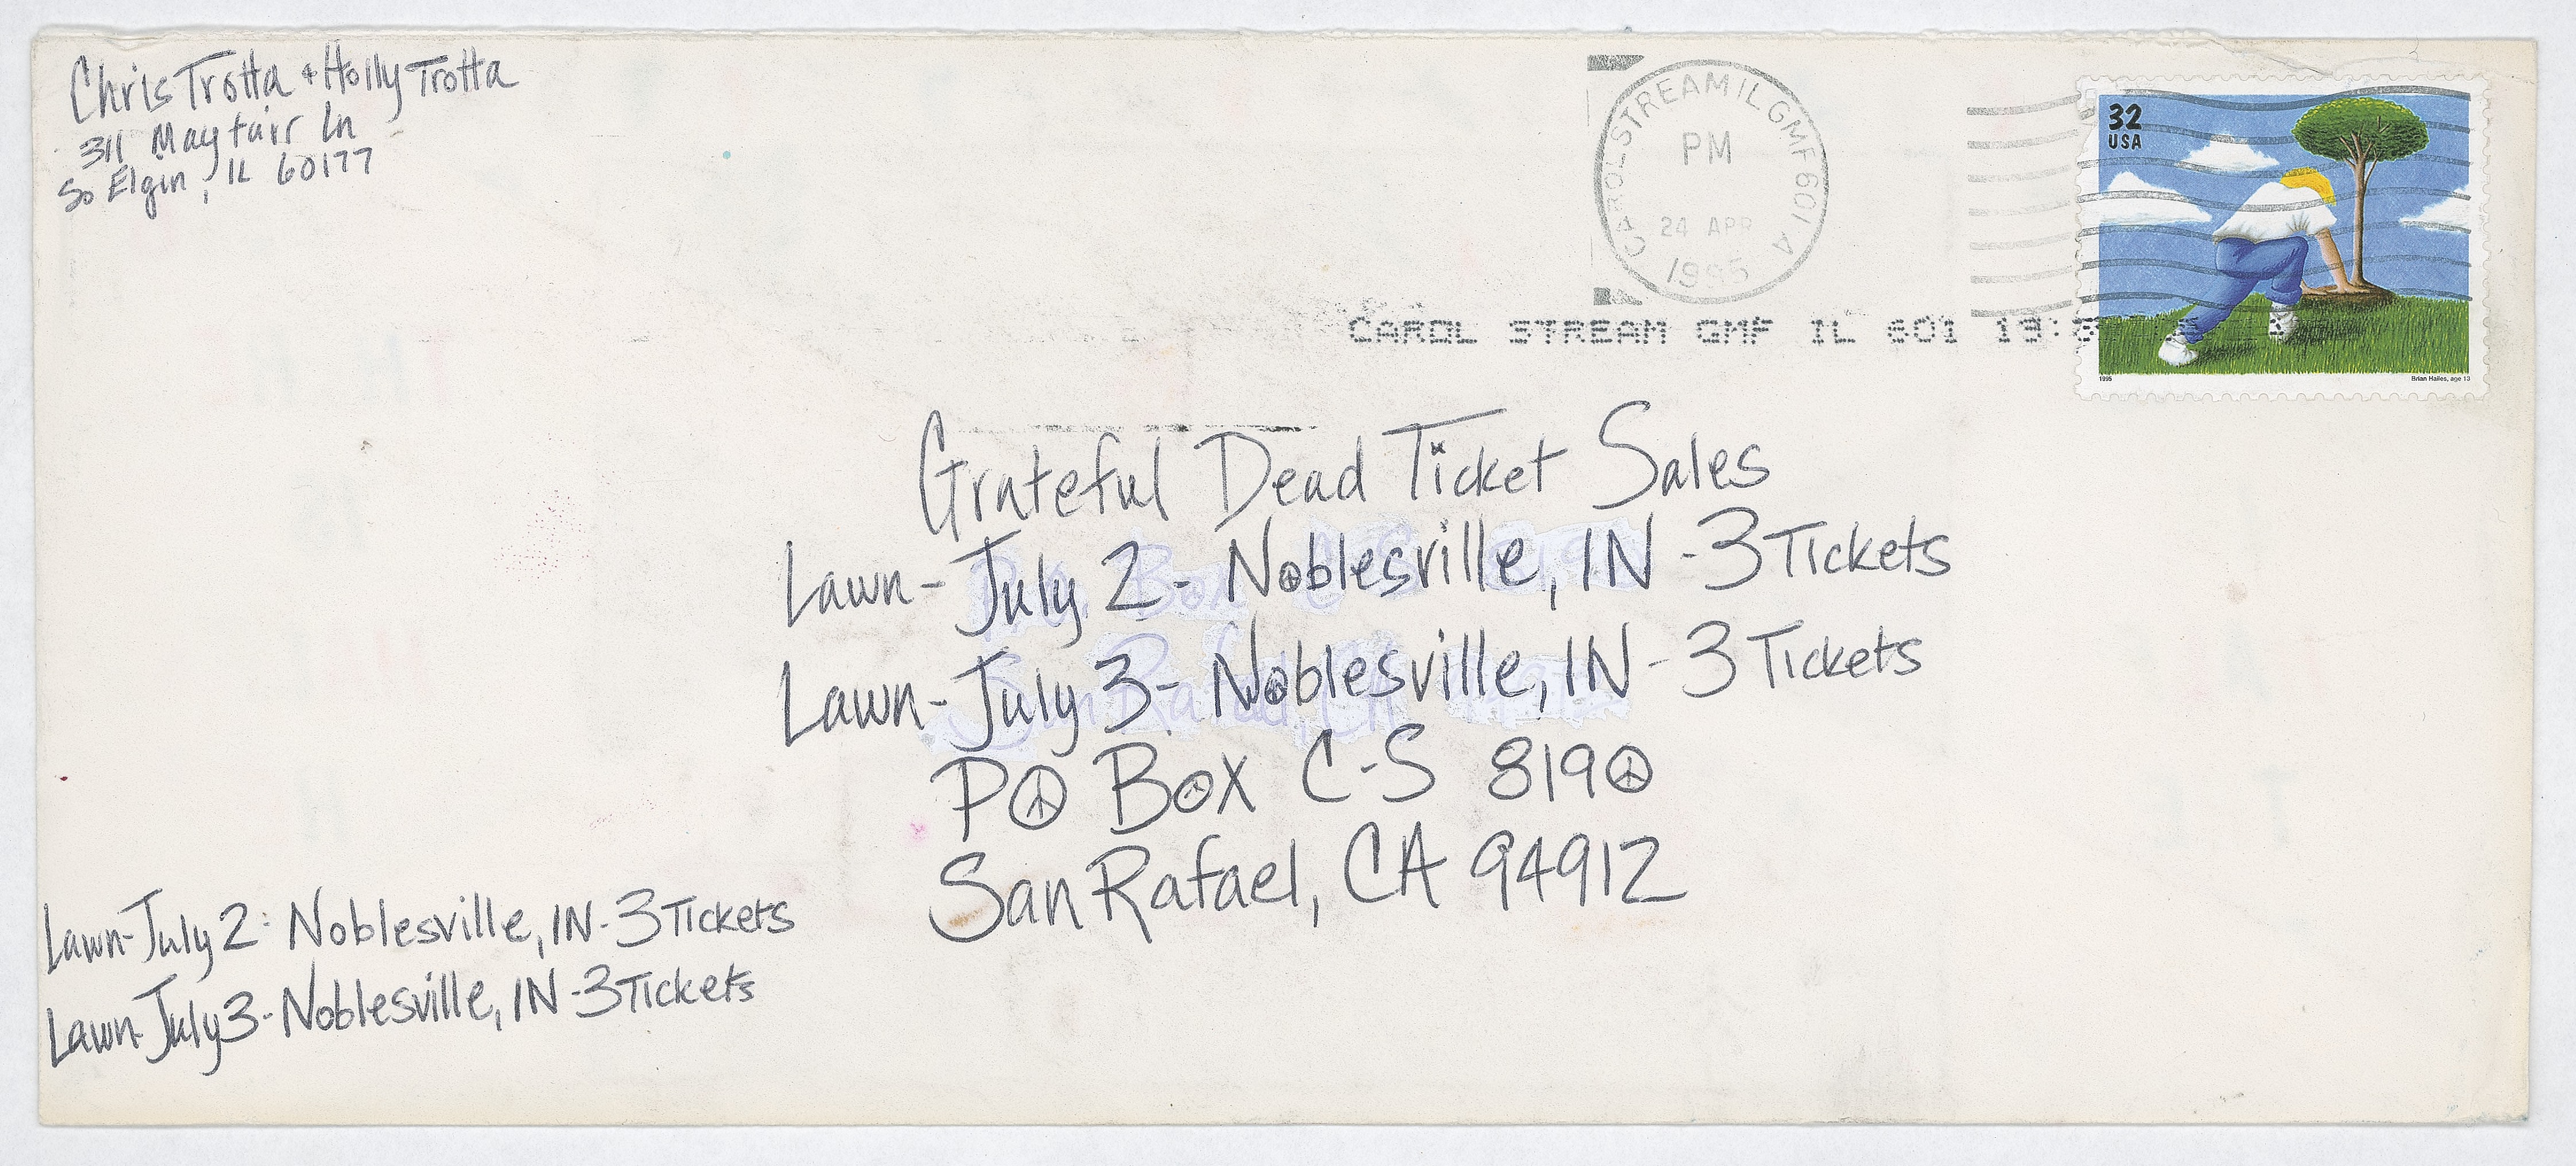 Chris Trotta + Holly Trotta
311 Mayfair Ln
So Elgin, IL 60177
CAROL STREAM IL GMF 601 A
PM
24 APR
1995
32
USA
CAROL STREAM GMF IL 601
1995
Brian Hailes, age 13
Grateful Dead Ticket Sales
Lawn-July 2- Noblesville, IN -3 Tickets
Lawn-July 3- Noblesville, IN -3 Tickets
PO Box C-S 8190
San Rafael, CA 94912
Lawn-July 2- Noblesville, IN-3 Tickets
Lawn-July 3-Noblesville, IN-3 Tickets